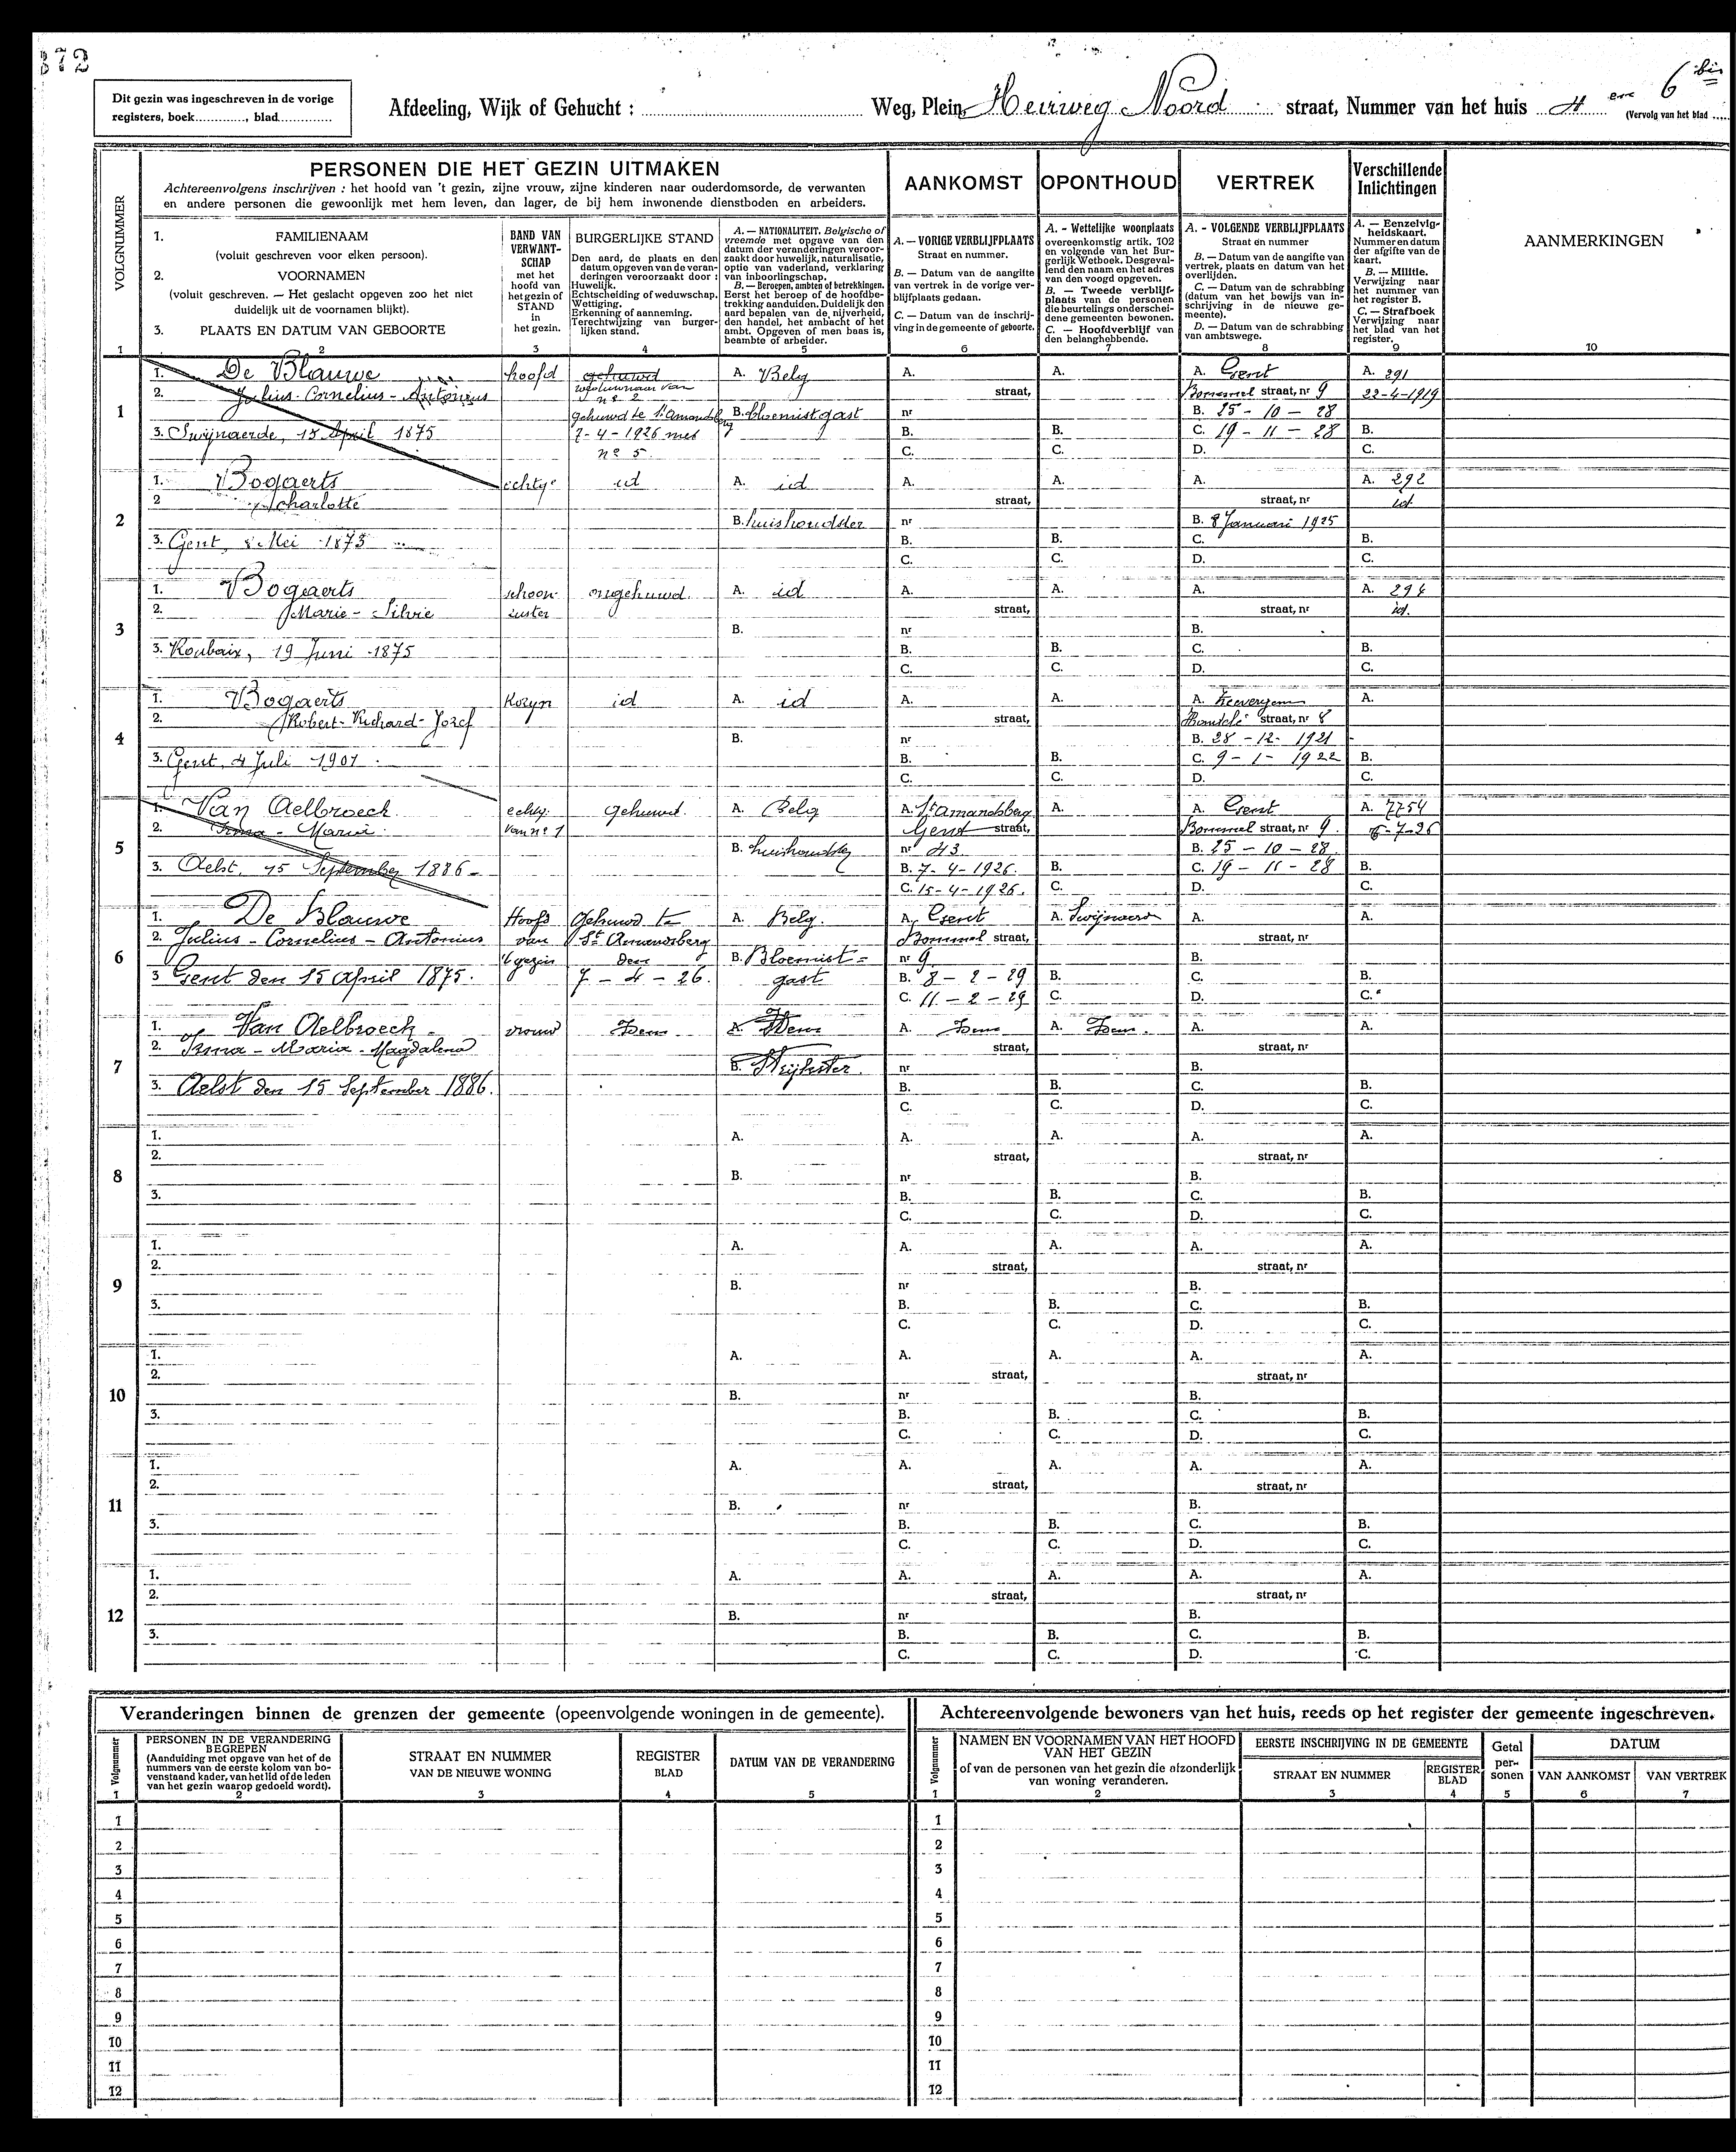 372
Dit gezin was ingeschreven in de vorige
registers, boek............, blad..............
Afdeeling, Wijk of Gehucht :
Weg, Plein, Heirweg Noord straat, Nummer van het huis
6 bis
(Vervolg van het blad .....
PERSONEN DIE HET GEZIN UITMAKEN
Achtereenvolgens inschrijven : het hoofd van 't gezin, zijne vrouw, zijne kinderen naar ouderdomsorde, de verwanten
en andere personen die gewoonlijk met hem leven, dan lager, de bij hem inwonende dienstboden en arbeiders.
AANKOMST
OPONTHOUD
VERTREK
Verschillende
Inlichtingen
VOLGNUMMER
1. FAMILIENAAM
(voluit geschreven voor elken persoon).
2. VOORNAMEN
(voluit geschreven. — Het geslacht opgeven zoo het niet
duidelijk uit de voornamen blijkt).
3. PLAATS EN DATUM VAN GEBOORTE
BAND VAN
VERWANT-
SCHAP
met het
hoofd van
het gezin of
STAND
in
het gezin.
BURGERLIJKE STAND
Den aard, de plaats en den
datum opgeven van de veran-
deringen veroorzaakt door :
Huwelijk.
Echtscheiding of weduwschap.
Wettiging.
Erkenning of aanneming.
Terechtwijzing van burger-
lijken stand.
A. — NATIONALITEIT. Belgische of
vreemde met opgave van den
datum der veranderingen veroor-
zaakt door huwelijk, naturalisatie,
optie van vaderland, verklaring
van inboorlingschap.
B. — Beroepen, ambten of betrekkingen.
Eerst het beroep of de hoofdbe-
trekking aanduiden. Duidelijk den
aard bepalen van de nijverheid,
den handel, het ambacht of het
ambt. Opgeven of men baas is,
beambte of arbeider.
A. — VORIGE VERBLIJFPLAATS
Straat en nummer.
B. — Datum van de aangifte
van vertrek in de vorige ver-
blijfplaats gedaan.
C. — Datum van de inschrij-
ving in de gemeente of geboorte.
A. - Wettelijke woonplaats
overeenkomstig artik. 102
en volgende van het Bur-
gerlijk Wetboek. Desgeval-
lend den naam en het adres
van den voogd opgeven.
B. — Tweede verblijf-
plaats van de personen
die beurtelings onderschei-
dene gemeenten bewonen.
C. — Hoofdverblijf van
den belanghebbende.
A. - VOLGENDE VERBLIJFPLAATS
Straat en nummer
B. — Datum van de aangifte van
vertrek, plaats en datum van het
overlijden.
C. — Datum van de schrabbing
(datum van het bewijs van in-
schrijving in de nieuwe ge-
meente).
D. — Datum van de schrabbing
van ambtswege.
A. — Eenzelvig-
heidskaart.
Nummer en datum
der afgifte van de
kaart.
B. — Militie.
Verwijzing naar
het nummer van
het register B.
C. — Strafboek
Verwijzing naar
het blad van het
register.
AANMERKINGEN
1 2 3 4 5 6 7 8 9 10
1
1. De Blauwe hoofd gehuwd A. Belg A. A. A. Gent A. 291
2. Julius-Cornelius-Antonius weduwnaar van nº 2 straat, Bommel straat, nr 9 22-4-1919
gehuwd te St Amandsberg B. bloemistgast nr B. 25-10-28
3. Swijnaerde, 15 April 1875 7-4-1926 met nº 5 B. B. C. 19-11-28 B.
C. C. D. C.
2
1. Bogaerts echtge id A. id A. A. A. A. 292
2 Charlotte straat, straat, nr id.
B. huishoudster nr B. 8 Januari 1925
3. Gent, 8 Mei 1875 B. B. C. B.
C. C. D. C.
3
1. Bogaerts schoon- ongehuwd. A. id A. A. A. A.
2. Marie-Silvie zuster straat, straat, nr id.
B. nr B.
3. Roubaix, 19 Juni 1875 B. B. C. B.
C. C. D. C.
4
1. Bogaerts Kozyn id A. id A. A. A. Zevergem A.
2. Robert-Richard-Jozef straat, straat, nr 8
B. nr B. 28-12-1921
3. Gent, 4 Juli 1901 B. B. C. 9-1-1922 B.
C. C. D. C.
5
1. Van Aelbroeck echtg. gehuwd. A. Belg A. St Amandsberg A. A. Gent A. 7754
2. Irma-Marie. van nº 1 Gent straat, Bommel straat, nr 9. 6-7-26
B. huishoudstg nr 43. B. 25-10-28.
3. Aelst, 15 September 1886 B. 7-4-1926. B. C. 19-11-28 B.
C. 15-4-1926. C. D. C.
6
1. De Blauwe Hoofd Gehuwd te A. Belg. A. Gent A. Swijnaerd A. A.
2. Julius-Cornelius-Antonius van St Amandsberg Bommel straat, straat, nr
't gezin den B. Bloemist= nr 9 B.
3 Gent den 15 April 1875. 7-4-26. gast B. 8-2-29 B. C. B.
C. 11-2-29 C. D. C.
7
1. Van Aelbroeck vrouw Idem A. Idem A. Idem A. Idem. A. A.
2. Irma-Maria-Magdalena straat, straat, nr
B. Strijkster. nr B.
3. Aelst den 15 September 1886. B. B. C. B.
C. C. D. C.
8
1. A. A. A. A. A.
2. straat, straat, nr
B. nr B.
3. B. B. C. B.
C. C. D. C.
9
1. A. A. A. A. A.
2. straat, straat, nr
B. nr B.
3. B. B. C. B.
C. C. D. C.
10
1. A. A. A. A. A.
2. straat, straat, nr
B. nr B.
3. B. B. C. B.
C. C. D. C.
11
1. A. A. A. A. A.
2. straat, straat, nr
B. nr B.
3. B. B. C. B.
C. C. D. C.
12
1. A. A. A. A. A.
2. straat, straat, nr
B. nr B.
3. B. B. C. B.
C. C. D. C.
Veranderingen binnen de grenzen der gemeente (opeenvolgende woningen in de gemeente).
Volgnummer
PERSONEN IN DE VERANDERING
BEGREPEN
(Aanduiding met opgave van het of de
nummers van de eerste kolom van bo-
venstaand kader, van het lid of de leden
van het gezin waarop gedoeld wordt).
STRAAT EN NUMMER
VAN DE NIEUWE WONING
REGISTER
BLAD
DATUM VAN DE VERANDERING
1 2 3 4 5
1
2
3
4
5
6
7
8
9
10
11
12
Achtereenvolgende bewoners van het huis, reeds op het register der gemeente ingeschreven.
Volgnummer
NAMEN EN VOORNAMEN VAN HET HOOFD
VAN HET GEZIN
of van de personen van het gezin die afzonderlijk
van woning veranderen.
EERSTE INSCHRIJVING IN DE GEMEENTE
STRAAT EN NUMMER
REGISTER
BLAD
Getal
per-
sonen
DATUM
VAN AANKOMST
VAN VERTREK
1 2 3 4 5 6 7
1
2
3
4
5
6
7
8
9
10
11
12